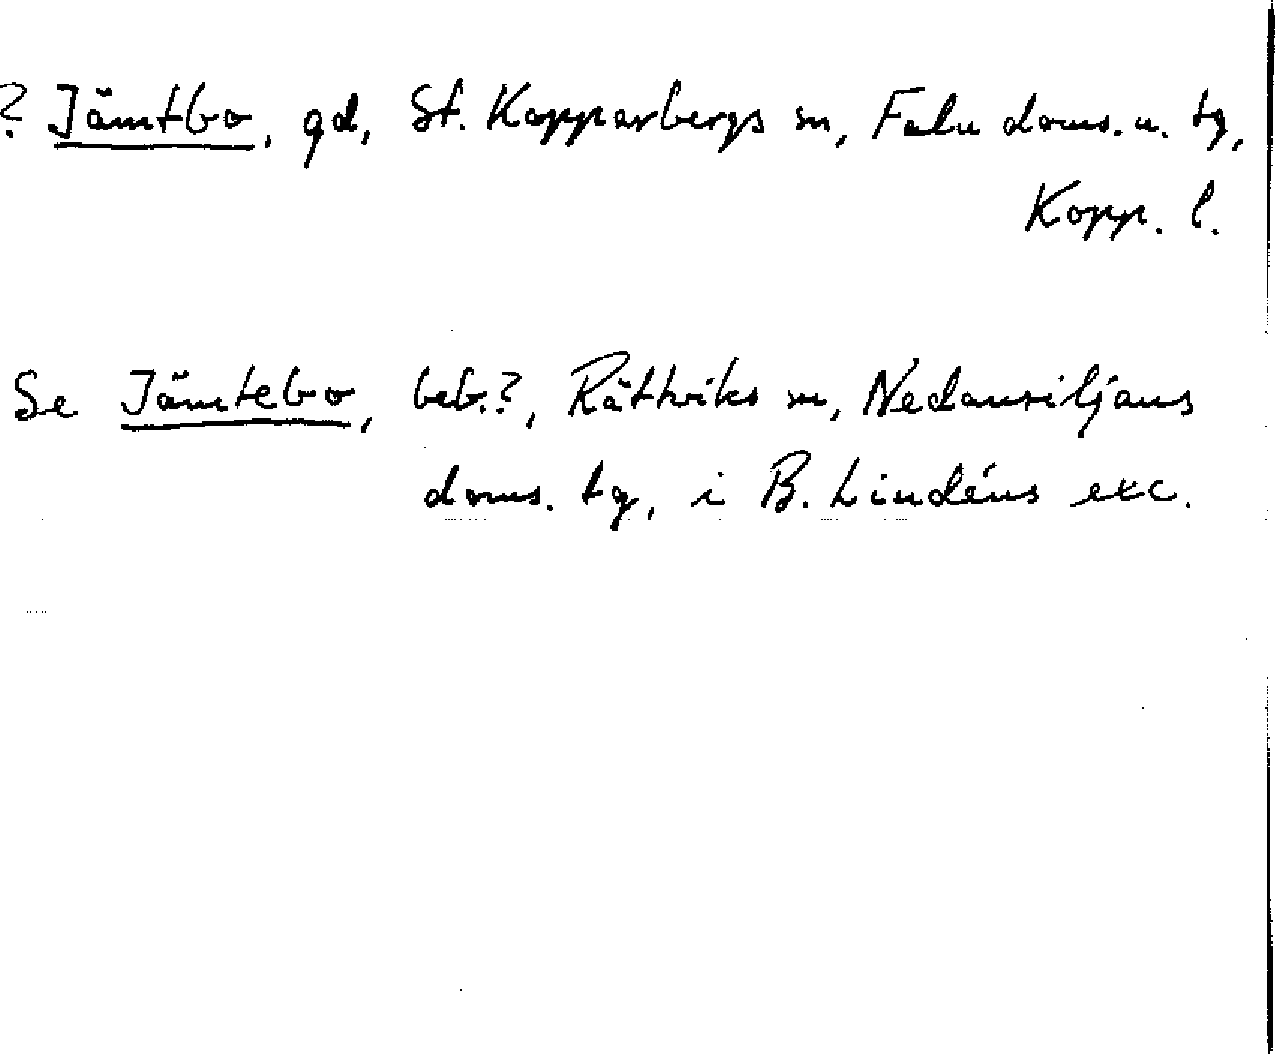 ? Jämtbo, gd, St. Kopparbergs sn, Falu doms. u. tg,
Kopp. l.
Se Jämtebo, beb.?, Rättviks sn, Nedansiljans
doms. tg, i B. Lindéns exc.